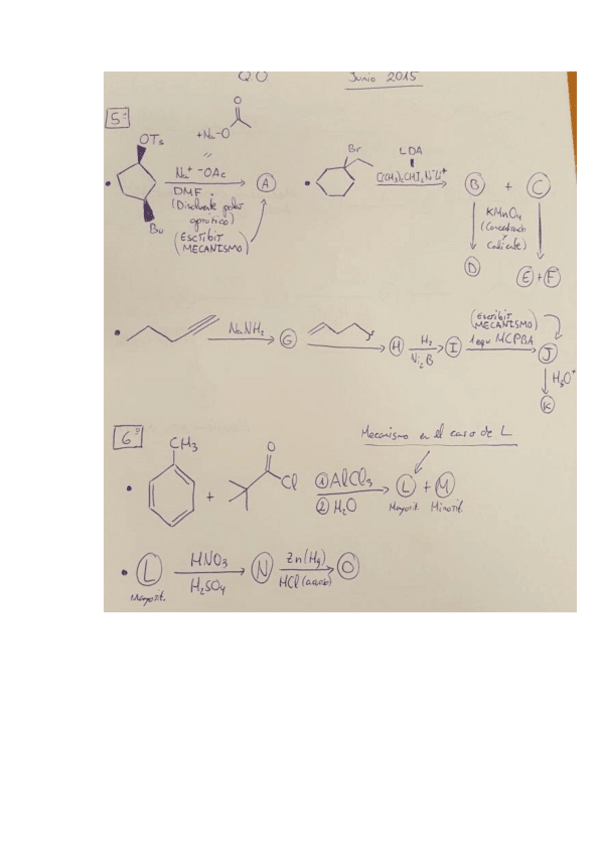 QO Junio 2015
5º
+Na-O
O
OTs
Na⁺ ⁻OAc
DMF
(Disolvente polar
aprótico)
(ESCRIBIR
MECANISMO)
A
Bu
Br
LDA
B + C
KMnO₄
(Concentrado
y
caliente)
D
E + F
NaNH₂
G
H
H₂
Ni₂B
I
(Escribir
MECANISMO)
1equ MCPBA
J
H₃O⁺
K
6º
Mecanismo en el caso de L
CH₃
+
O
Cl
① AlCl₃
② H₂O
L + M
Mayorit. Minorit
L
Mayorit.
HNO₃
H₂SO₄
N
Zn(Hg)
HCl
O